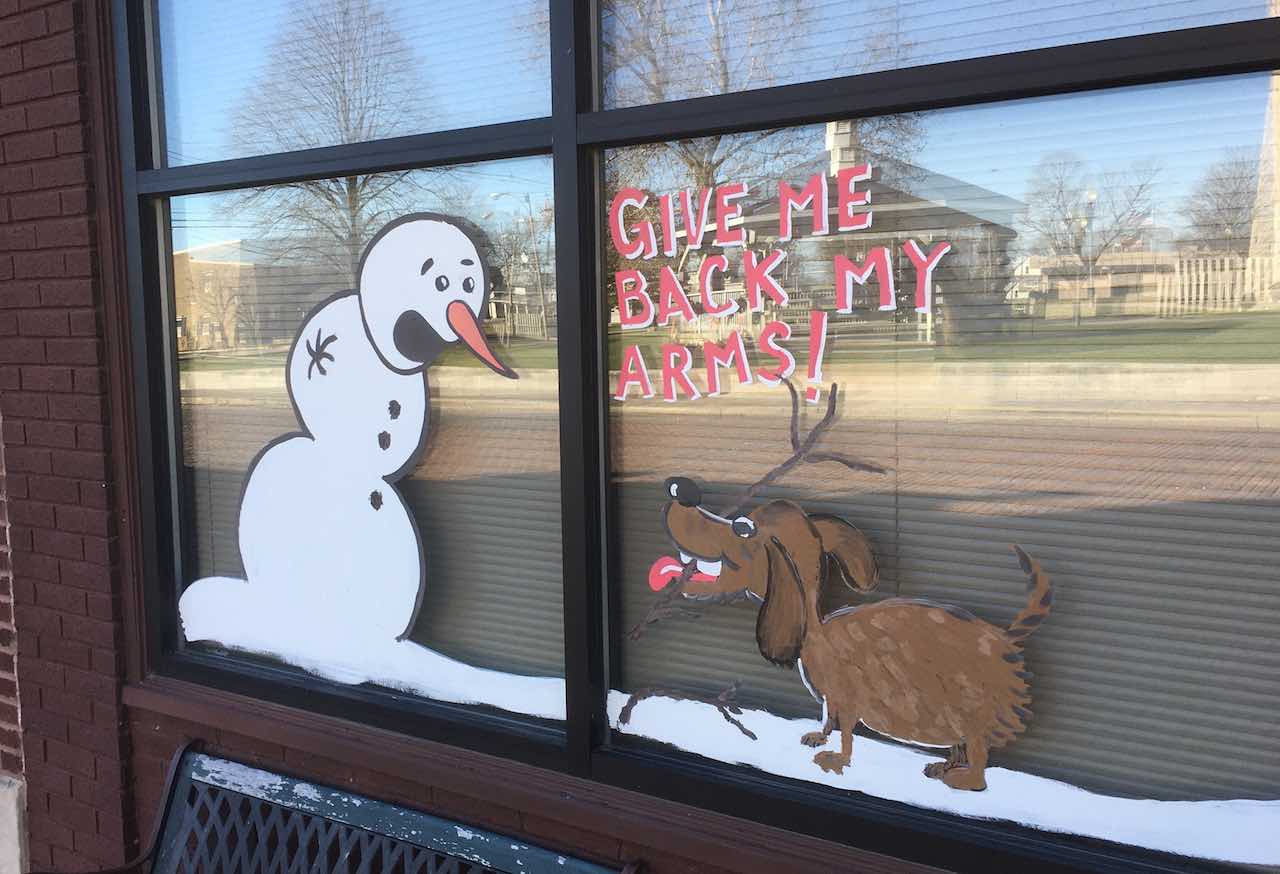 GIVE ME
BACK MY
ARMS!